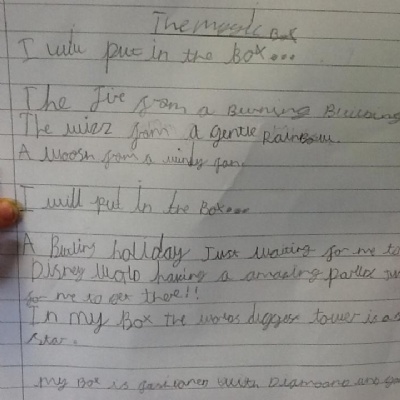 The magic Box
I will put in the box...
The Fire from a Burning Building
The wizz from a gentle Rainbow.
A woosh from a windy fan.
I will put in the box...
A holiday Just waiting for me to
Disney World having a amazing
for me to get there!!
In my Box the worlds biggest tower is a
star.
my Box is with Diamond and